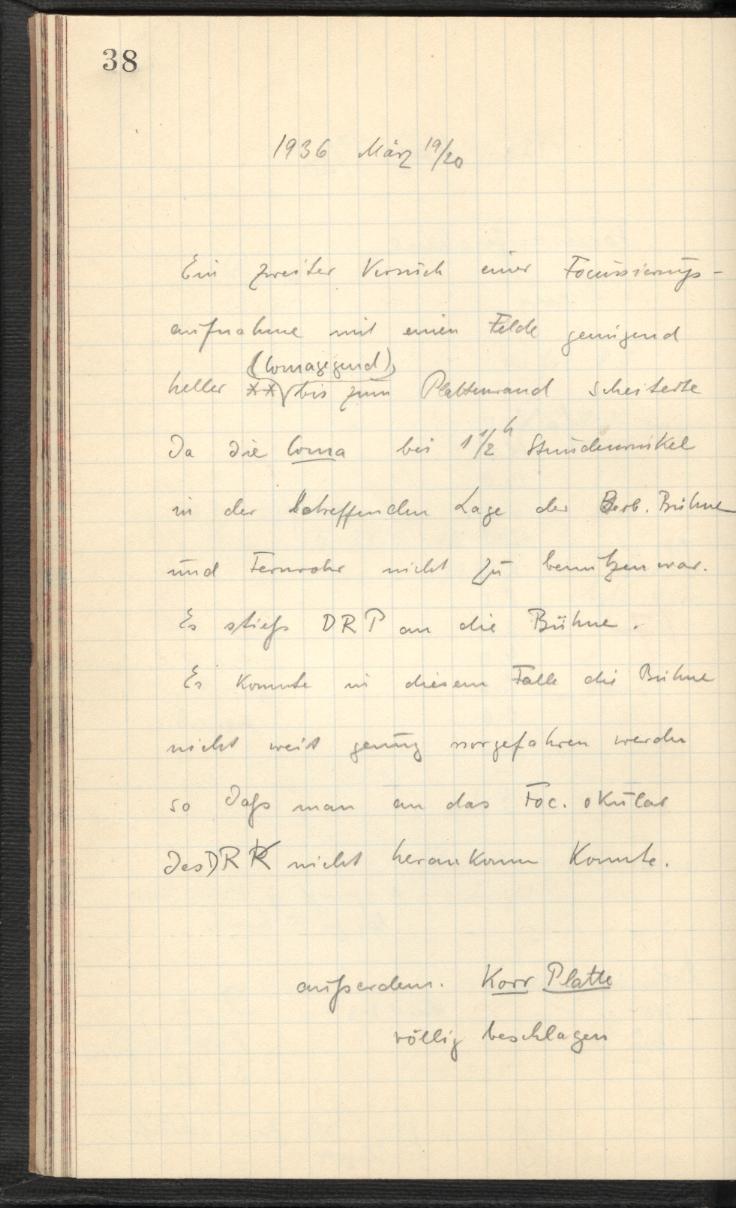 38
1936 März 19/20
Ein zweiter Versuch einer Focussierungs-
aufnahme mit einem Felde genügend
(Comagegend)
heller ** bis zum Plattenrand scheiterte
Da die Coma bei 1 1/2 h Stundenwinkel
in der betreffenden Lage der Beob. Bühne
und Fernrohr nicht zu benutzen war.
Es stieß DRP an die Bühne.
Es konnte in diesem Falle die Bühne
nicht weit genug vorgefahren werden
so daß man an das Foc. okular
des DR nicht herankomm konnte.
außerdem. Korr Platte
völlig beschlagen